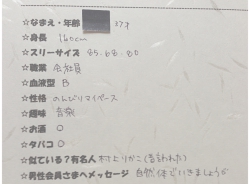 ☆なまえ・年齢 37才
☆身長 160cm
☆スリーサイズ 85.68.80
☆職業 会社員
☆血液型 B
☆性格 のんびりマイペース
☆趣味 音楽
☆お酒 〇
☆タバコ 〇
☆似ている?有名人 村上りかこ(言われた)
☆男性会員さまへメッセージ 自然体でいきましょう